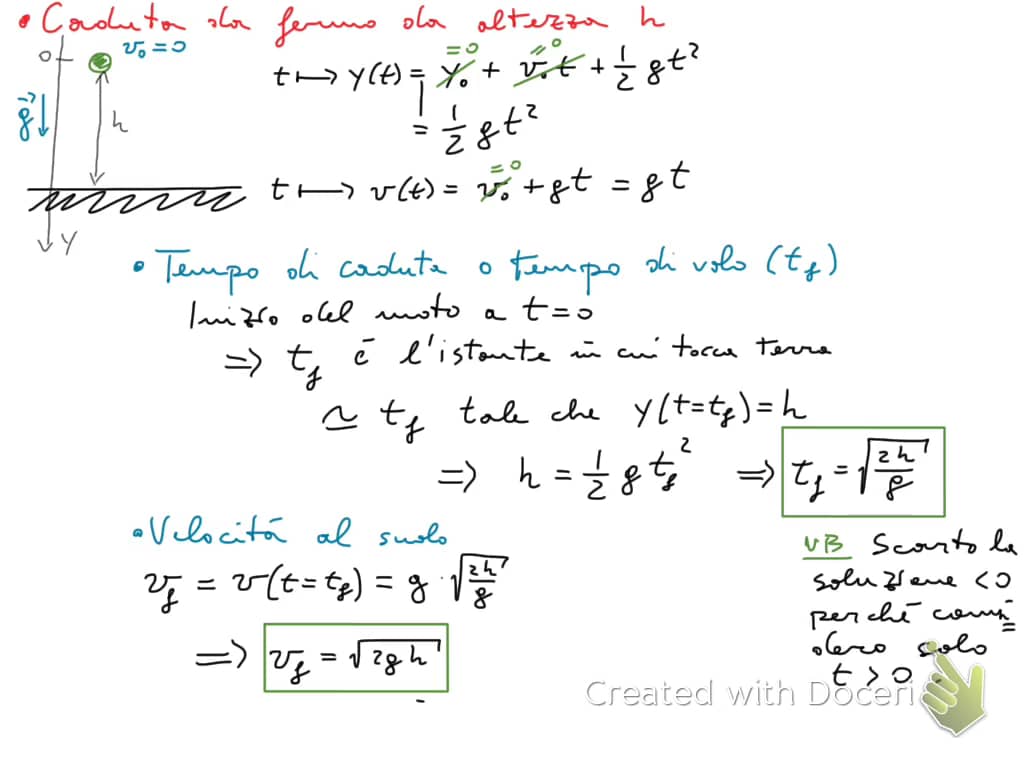 • Caduta da fermo da altezza h
0
v₀ = 0
g⃗
h
y
t ⟼ y(t) = y₀ + v₀t + ½ gt²
= 0
= 0
= ½ gt²
t ⟼ v(t) = v₀ + gt = gt
= 0
• Tempo di caduta o tempo di volo (t_f)
Inizio del moto a t = 0
⇒ t_f è l'istante in cui tocca terra
≃ t_f tale che y(t=t_f) = h
⇒ h = ½ g t_f² ⇒ t_f = √(2h/g)
• Velocità al suolo
v_f = v(t=t_f) = g · √(2h/g)
⇒ v_f = √(2gh)
NB Scarto la
soluzione < 0
perché consi=
dero solo
t > 0
Created with Doceri